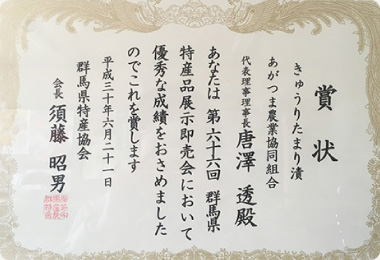 賞状
きゅうりたまり漬
あがつま農業協同組合
代表理事理事長 唐澤 透殿
あなたは 第六十六回 群馬県
特産品展示即売会において
優秀な成績をおさめました
のでこれを賞します
平成三十年六月二十一日
群馬県特産協会
会長 須藤 昭男